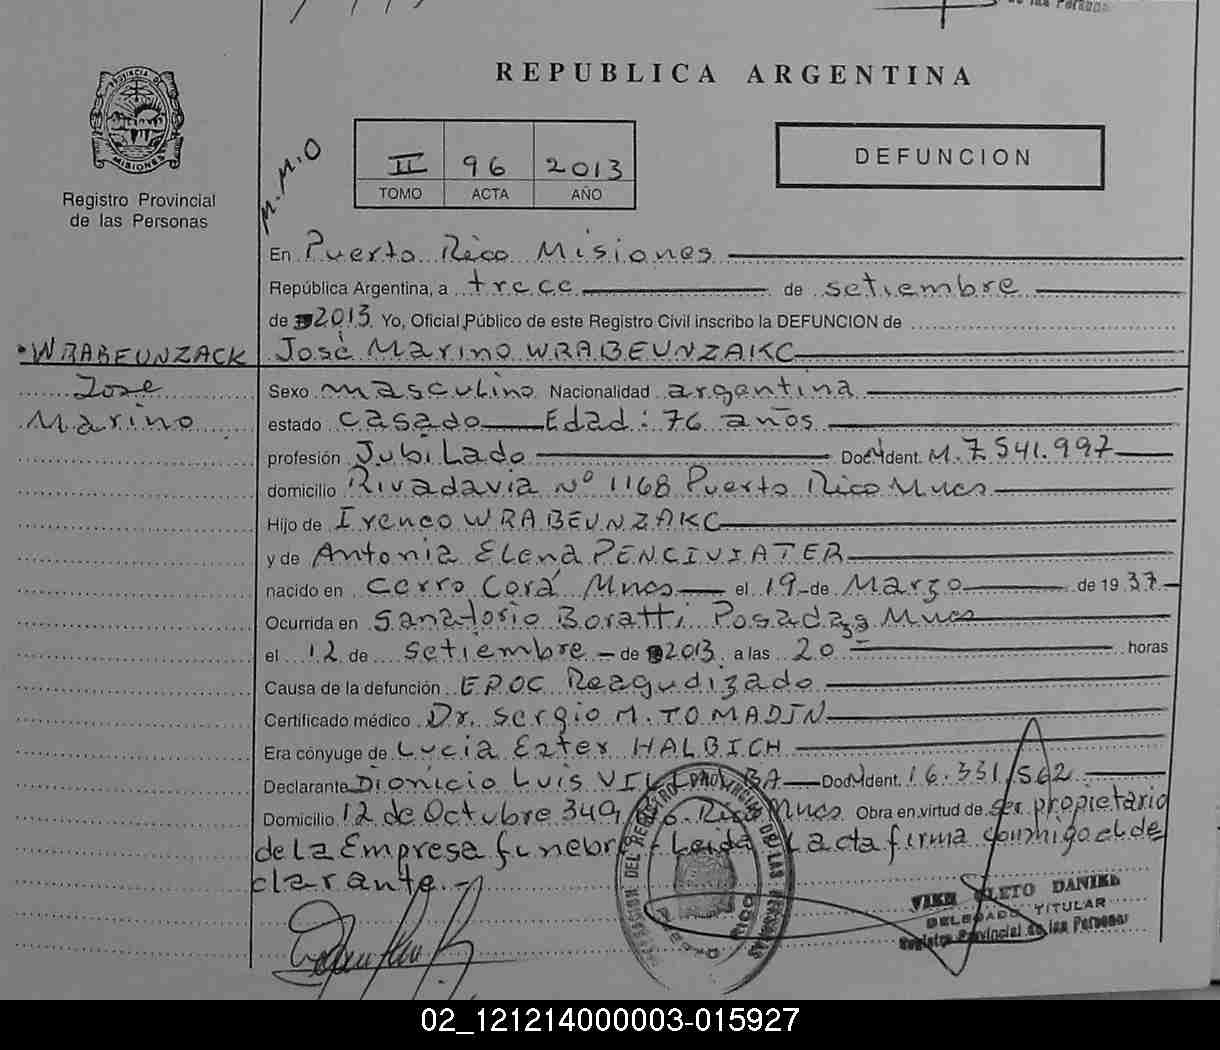 de las Personas
REPUBLICA ARGENTINA
PROVINCIA DE
MISIONES
Registro Provincial
de las Personas
M.M.O
II 96 2013
TOMO ACTA AÑO
DEFUNCION
En Puerto Rico Misiones
República Argentina, a trece de setiembre
de 2013. Yo, Oficial Público de este Registro Civil inscribo la DEFUNCION de
WRABEUNZACK José Marino WRABEUNZAKC
Jose
Marino
Sexo masculino Nacionalidad argentina
estado casado Edad: 76 años
profesión Jubilado Doc. Ident. M. 7.541.997
domicilio Rivadavia Nº 1168 Puerto Rico Mnes
Hijo de Ireneo WRABEUNZAKC
y de Antonia Elena PENCIUSATER
nacido en Cerro Corá Mnes el 19 de Marzo de 1937
Ocurrida en Sanatorio Boratti Posadas Mnes
el 12 de setiembre de 2013 a las 20 35 horas
Causa de la defunción EPOC Reagudizado
Certificado médico Dr. Sergio M. TOMADIN
Era cónyuge de Lucia Ester HALBICH
Declarante Dionicio Luis Doc. Ident. 16.331.562
Domicilio 12 de Octubre 349 Rico Mnes. Obra en virtud de ser propietario
de la Empresa funebre. Leida acta firma conmigo el de
clarante.
DEL REGISTRO PROVINCIAL DE LAS PERSONAS
PUERTO RICO
CLETO DANIEL
DELEGADO TITULAR
Registro Provincial de las Personas
02_121214000003-015927